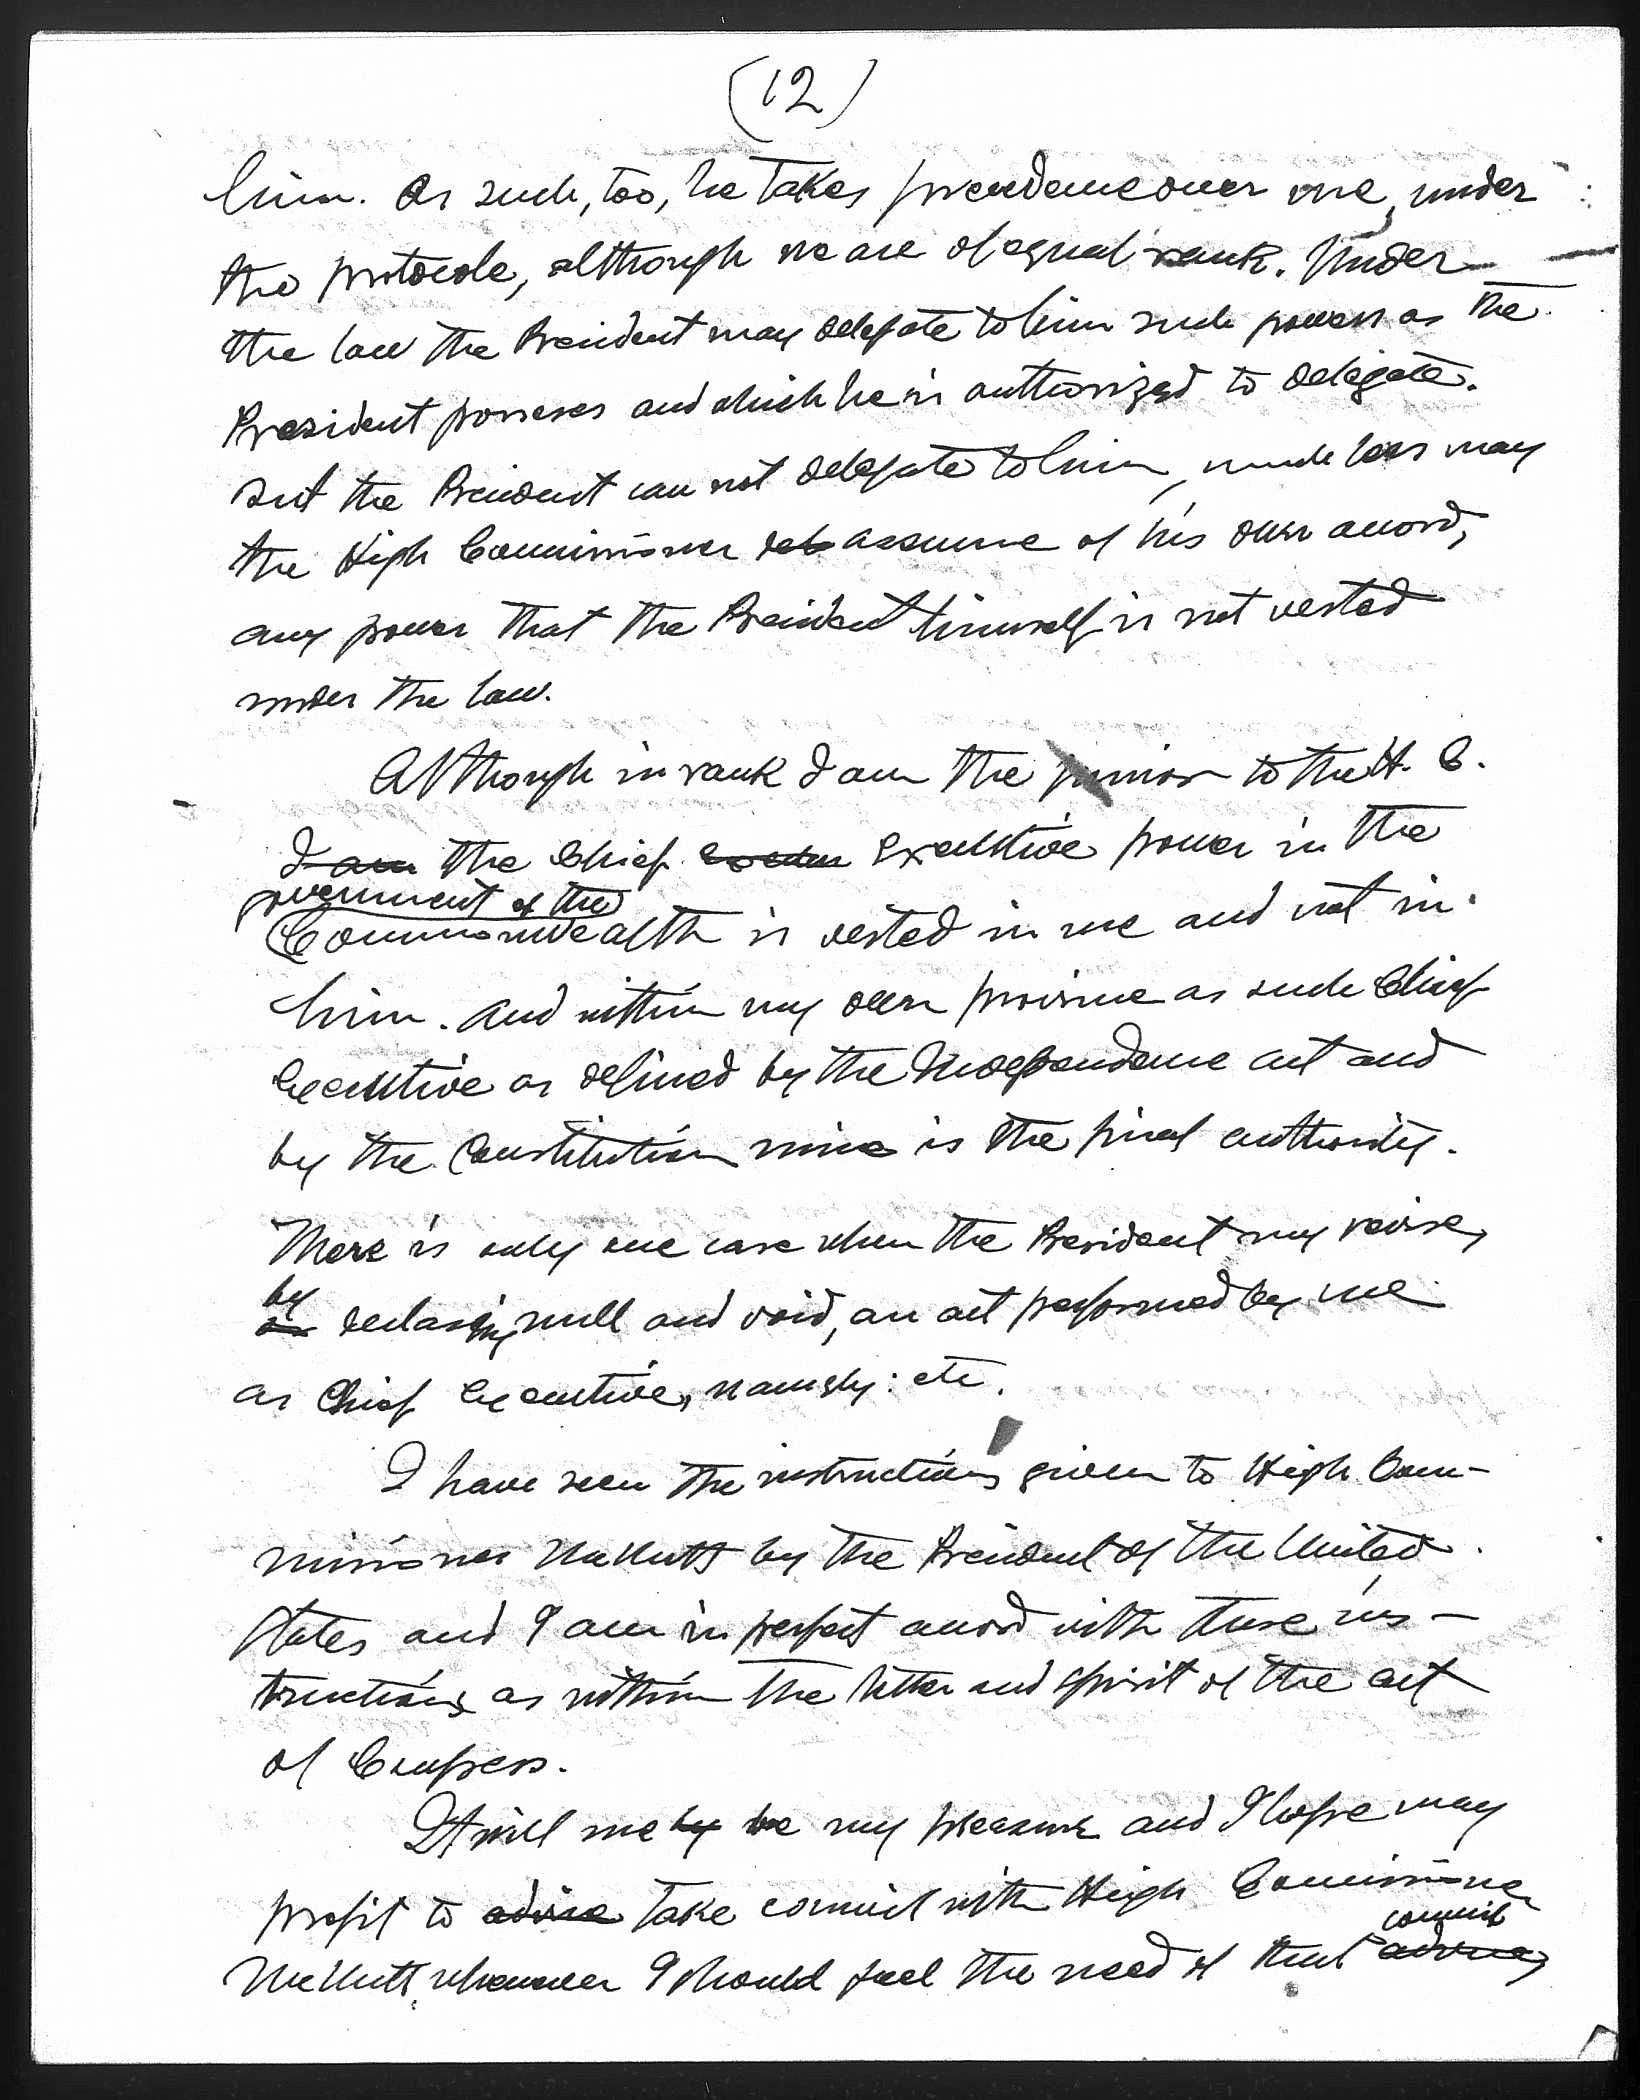 (12)
him. As such, too, he takes precedence over me, under
the protocole, although we are of equal rank. Under
the law the President may delegate to him such powers as the
President posseses and which he is authorized to delegate.
But the President can not delegate to him, much less may
the High Commissioner assume of his own accord,
any power that the President himself is not vested
under the law.
Although in rank I am the junior to the H. C.
I am the Chief Executive power in the
government of the
Commonwealth is vested in me and not in
him. And within my own province as such Chief
Executive as defined by the Independence act and
by the Constitution mine is the final authority.
There is only one case when the President may revise,
by
or declaring null and void, an act performed by me
as Chief Executive, namely: etc.
I have seen the instructions given to High Com-
missioner McNutt by the President of the United
States and I am in perfect accord with those ins-
tructions as within the letter and spirit of the act
of Congress.
It will me by be my pleasure and I hope may
profit to advise take council with High Commissioner
council
McNutt, whenever I should feel the need of that advice,